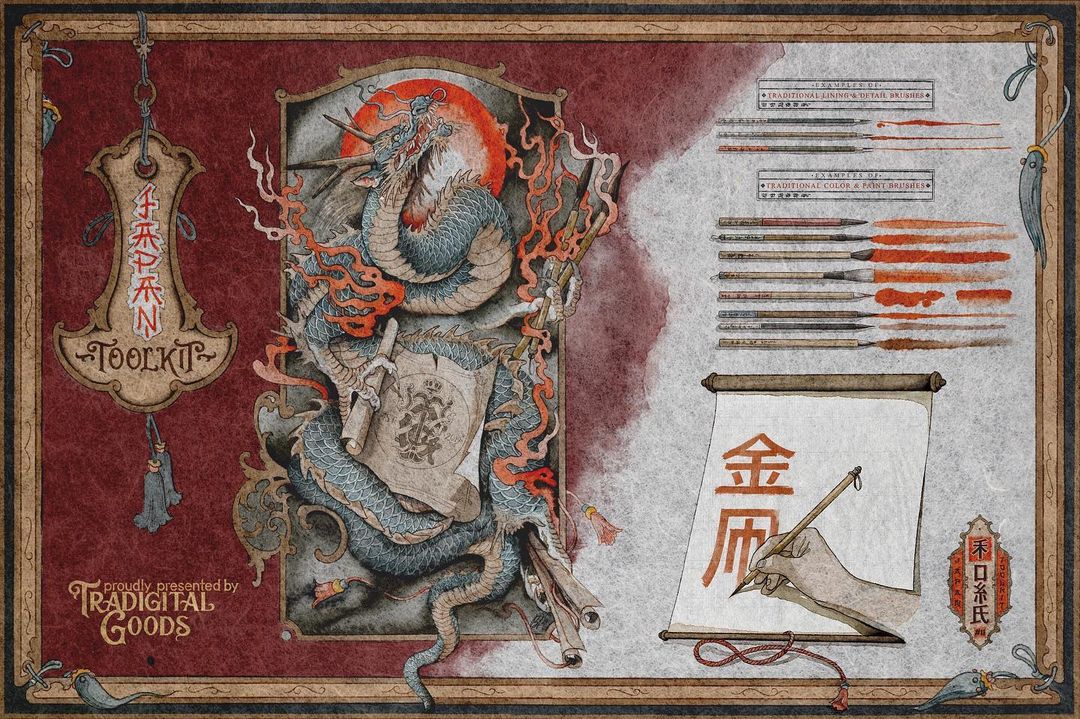 JAPAN
TOOLKIT
proudly presented by
TRADIGITAL
GOODS
EXAMPLES OF
TRADITIONAL LINING & DETAIL BRUSHES
EXAMPLES OF
TRADITIONAL COLOR & PAINT BRUSHES
金
禾
口
糸
氏
JAPAN
TOOLKIT